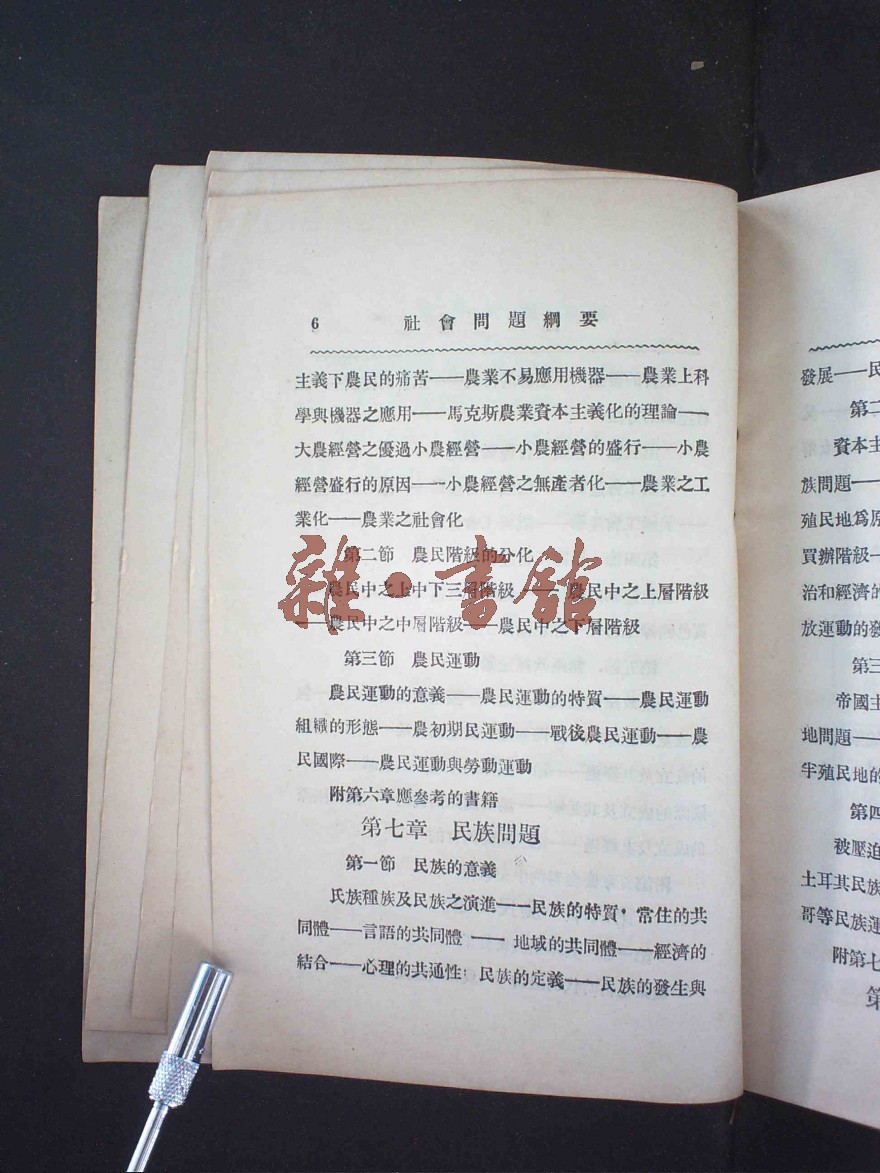 6 社會問題綱要
主義下農民的痛苦——農業不易應用機器——農業上科
學與機器之應用——馬克斯農業資本主義化的理論——
大農經營之優過小農經營——小農經營的盛行——小農
經營盛行的原因——小農經營之無產者化——農業之工
業化——農業之社會化
第二節 農民階級的分化
農民中之上中下三層階級——農民中之上層階級
——農民中之中層階級——農民中之下層階級
第三節 農民運動
農民運動的意義——農民運動的特質——農民運動
組織的形態——農初期民運動——戰後農民運動——農
民國際——農民運動與勞動運動
附第六章應參考的書籍
第七章 民族問題
第一節 民族的意義
民族種族及民族之演進——民族的特質·常住的共
同體——言語的共同體——地域的共同體——經濟的
結合——心理的共通性;民族的定義——民族的發生與
雜·書館
發展——民
第二
資本主
族問題——
殖民地爲原
買辦階級—
治和經濟的
放運動的發
第三
帝國主
地問題——
半殖民地的
第四
被壓迫
土耳其民族
哥等民族運
附第七
第